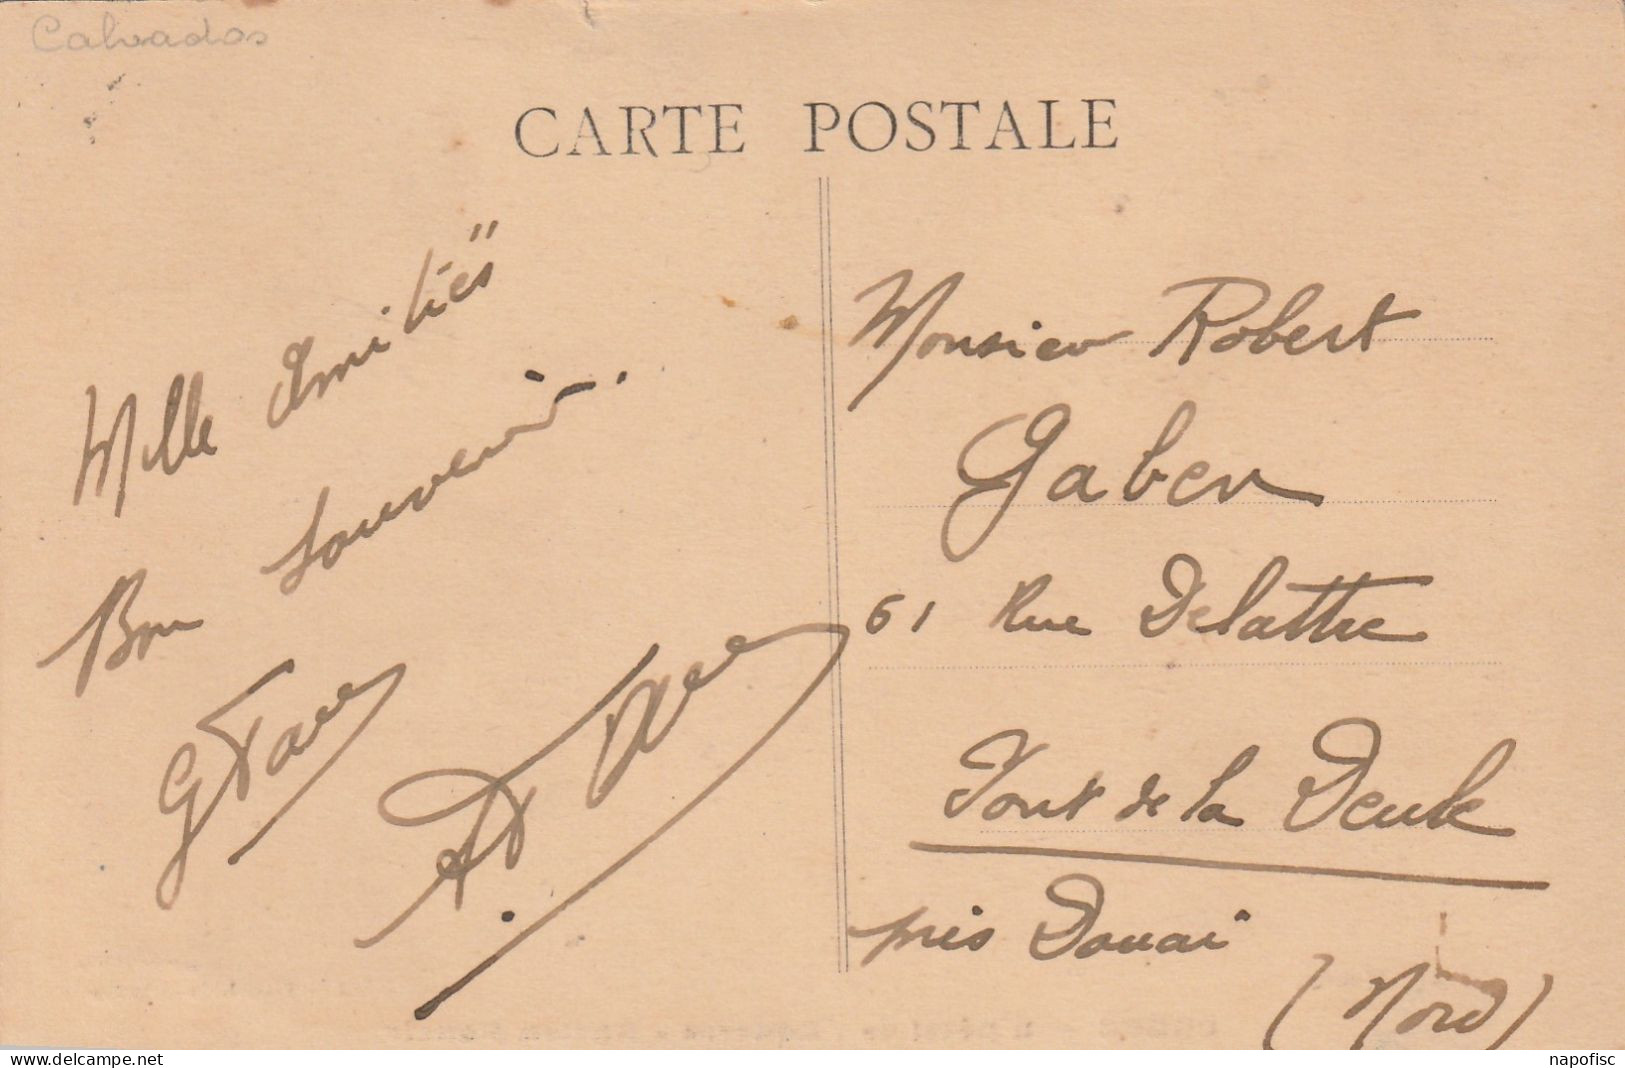 Calvados
CARTE POSTALE
Mille Amitiés
Bon Souvenir.
Monsieur Robert
Gaben
61 Rue Delattre
Pont de la Deule
près Douai
(Nord)
delcampe.net
napofisc